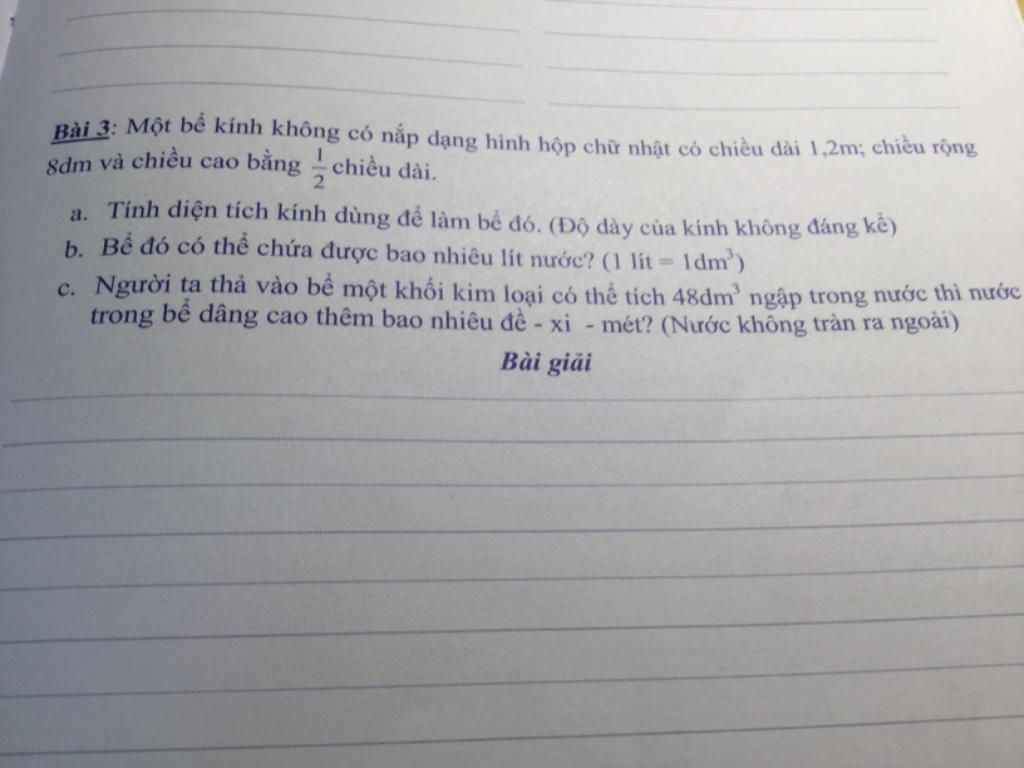 Bài 3: Một bể kính không có nắp dạng hình hộp chữ nhật có chiều dài 1,2m; chiều rộng
8dm và chiều cao bằng 1/2 chiều dài.
a. Tính diện tích kính dùng để làm bể đó. (Độ dày của kính không đáng kể)
b. Bể đó có thể chứa được bao nhiêu lít nước? (1 lít = 1dm³)
c. Người ta thả vào bể một khối kim loại có thể tích 48dm³ ngập trong nước thì nước
trong bể dâng cao thêm bao nhiêu đề - xi - mét? (Nước không tràn ra ngoài)
Bài giải